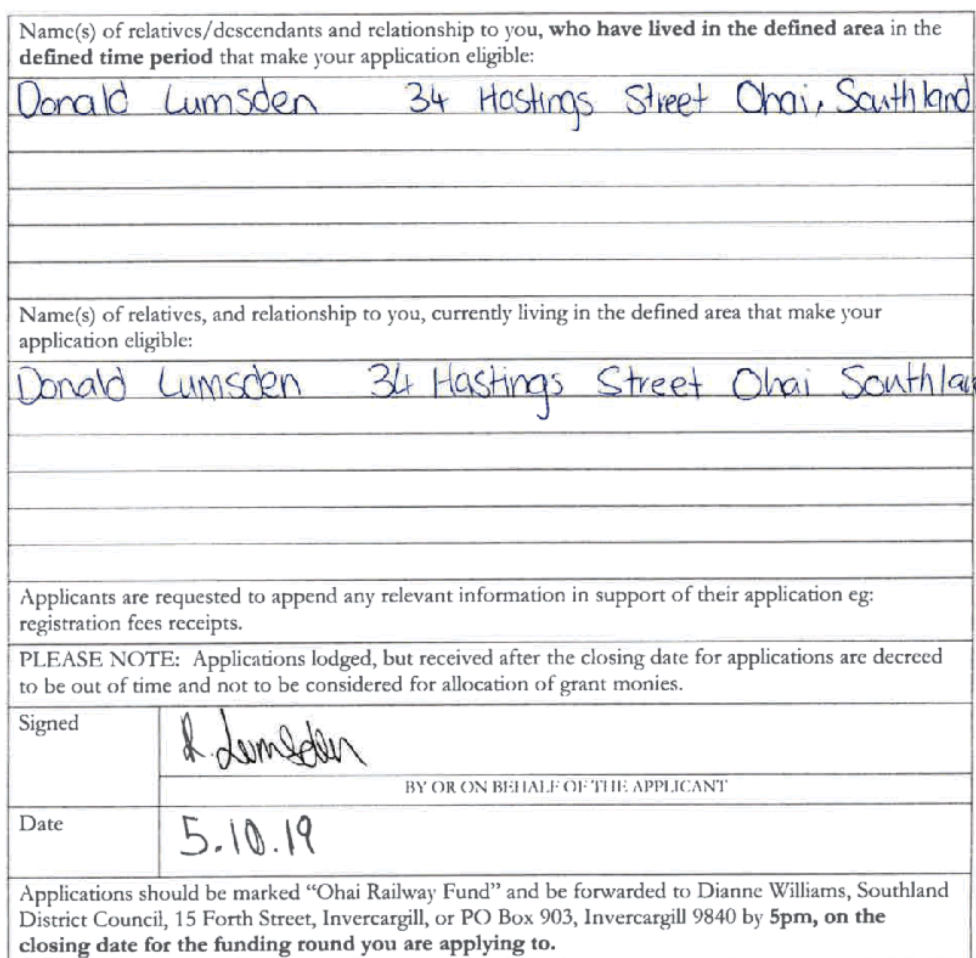 Name(s) of relatives/descendants and relationship to you, who have lived in the defined area in the
defined time period that make your application eligible:
Donald Lumsden 34 Hastings Street Ohai, Southland
Name(s) of relatives, and relationship to you, currently living in the defined area that make your
application eligible:
Donald Lumsden 34 Hastings Street Ohai Southlan
Applicants are requested to append any relevant information in support of their application eg:
registration fees receipts.
PLEASE NOTE: Applications lodged, but received after the closing date for applications are decreed
to be out of time and not to be considered for allocation of grant monies.
Signed
Lumsden
BY OR ON BEHALF OF THE APPLICANT
Date
5.10.19
Applications should be marked “Ohai Railway Fund” and be forwarded to Dianne Williams, Southland
District Council, 15 Forth Street, Invercargill, or PO Box 903, Invercargill 9840 by 5pm, on the
closing date for the funding round you are applying to.